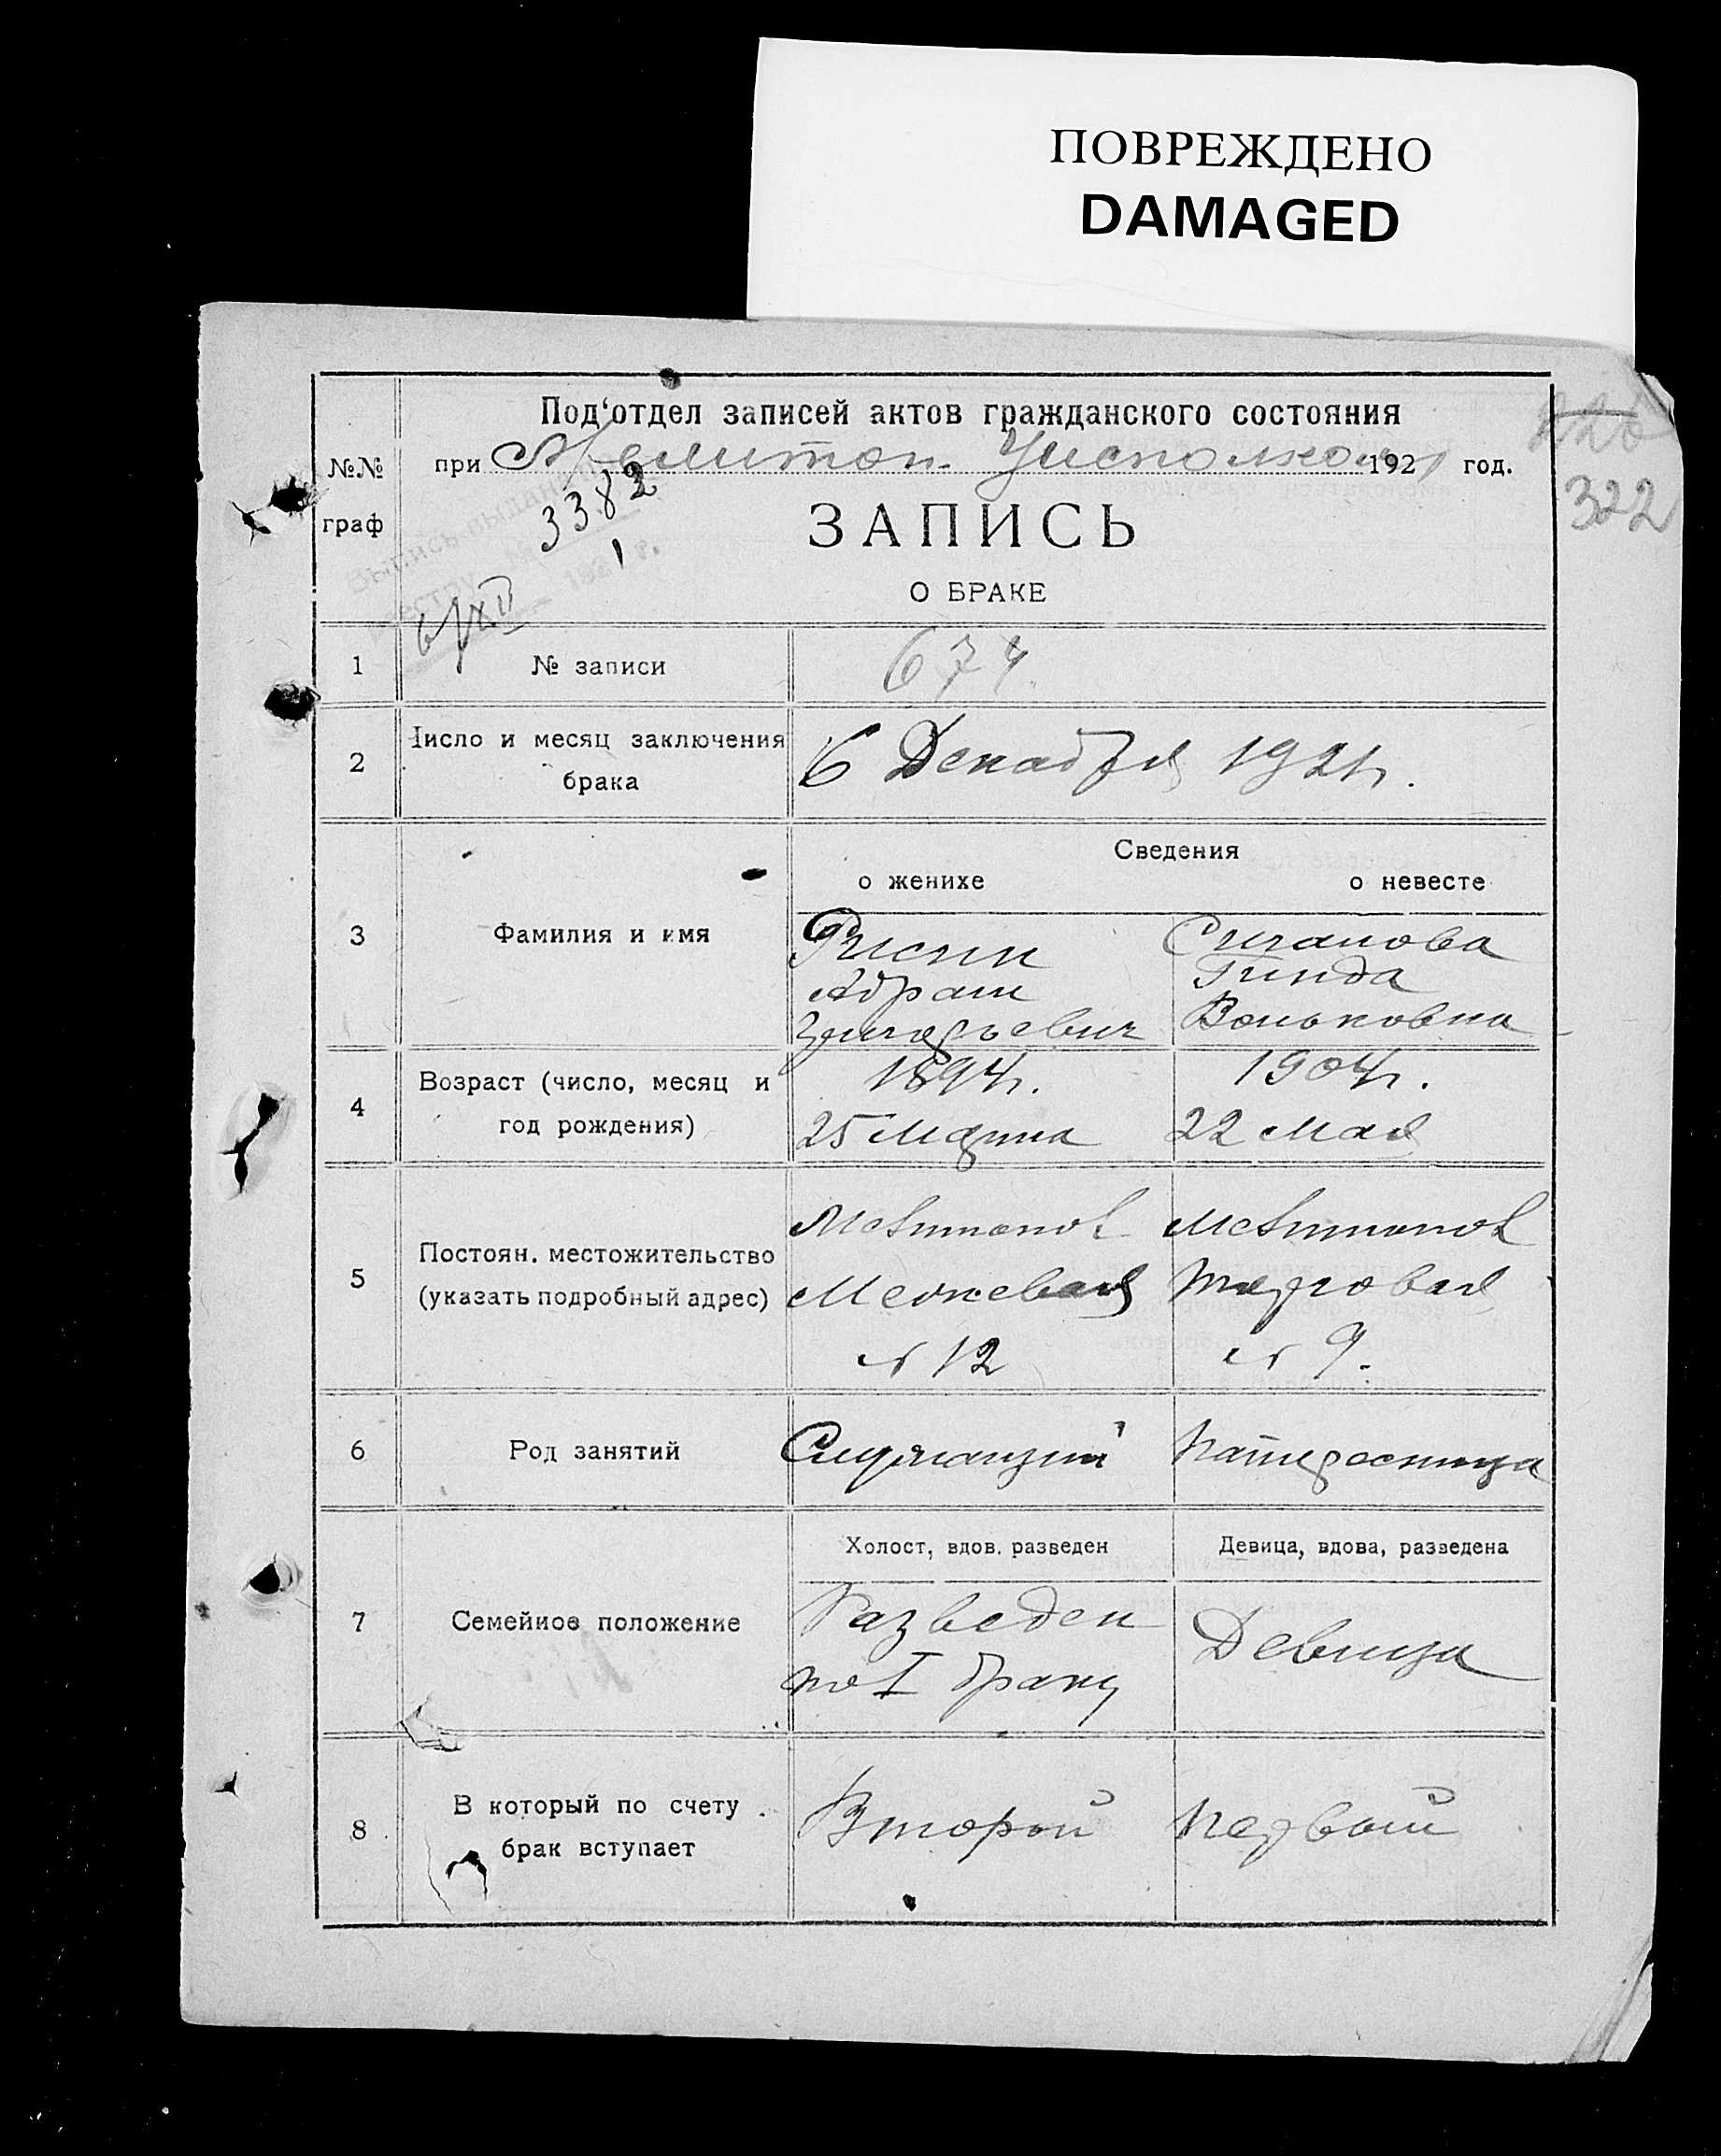 ПОВРЕЖДЕНО
DAMAGED
Под'отдел записей актов гражданского состояния
№№ граф
при Мелитоп. Уисполкоме 1921 год.
220
322
3382
ЗАПИСЬ
О БРАКЕ
6/XII
1 № записи 674.
2 Число и месяц заключения
брака
6 Декабря 1921г.
Сведения
о женихе о невесте
3 Фамилия и имя
Рисин
Абрам
Сиганова
Гинда
Вольковна
4 Возраст (число, месяц и
год рождения)
1894г. 1904г.
25 Марта 22 Мая
5 Постоян. местожительство
(указать подробный адрес)
Мелитополь Мелитополь
Торговая
№ 12 № 9.
6 Род занятий
Служащий
7 Семейное положение
Холост, вдов. разведен Девица, вдова, разведена
Разведен Девица
по I браку
8 В который по счету
брак вступает
Второй Первый